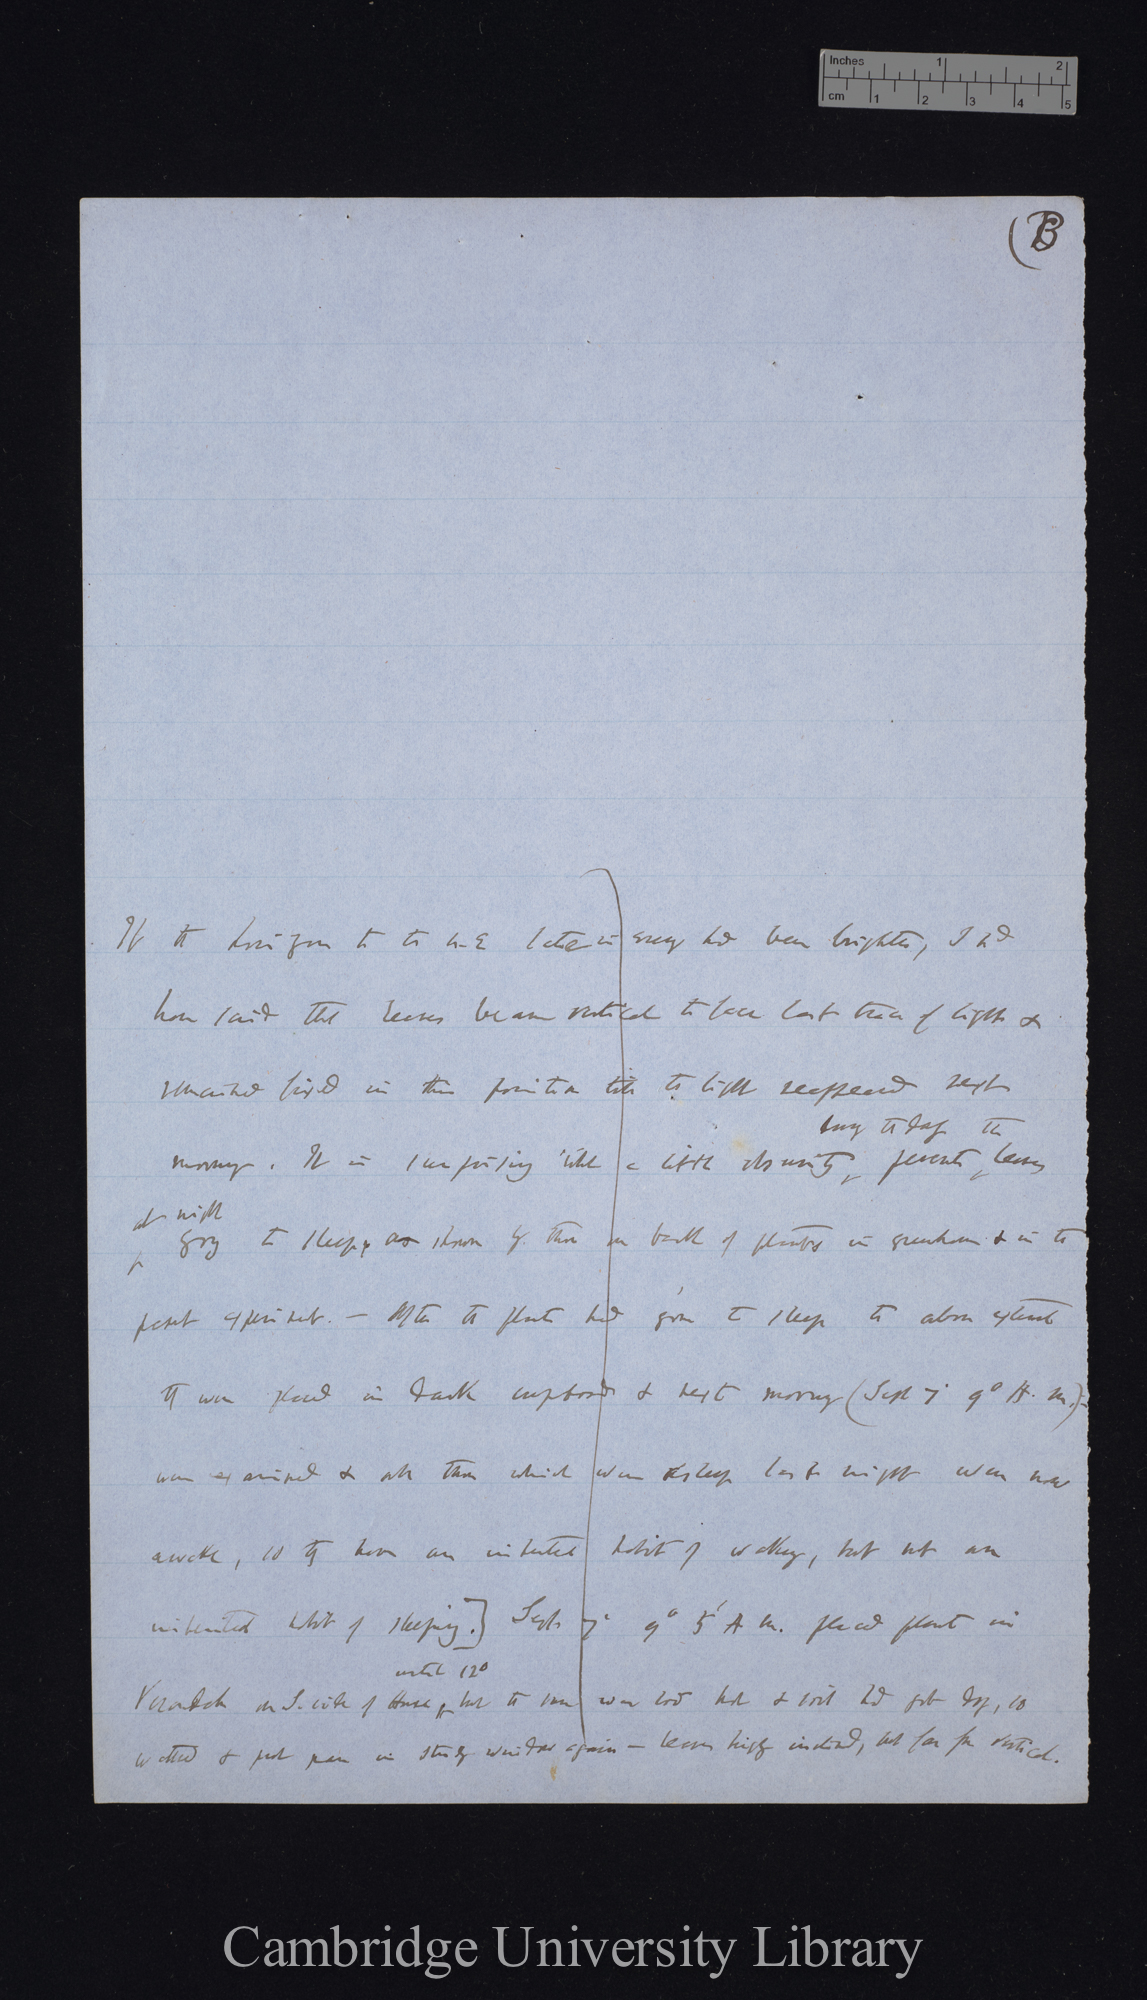 Inches 1 2
cm 1 2 3 4 5
(B
If the horizon to the N.E. late in eveng had been brighter, I shd
have said that leaves became vertical to face last trace of light &
remained fixed in this position till the light reappeared next
during the day the
morning. It is surprising what a little obscurity, prevents leaves
at night
going to sleep, as shown by those on back of plants in greenhouse & in the
present experiment. — After the plants had gone to sleep to above extent
they were placed in dark cupboard & next morning (Sept 7 9° A.m.)
were examined & all those which were asleep last night were now
awake, so they have an inherited habit of waking, but not an
inherited habit of sleeping.] Sept 7 9° 5' A m. placed plant in
until 12°
Verandah on S. side of House, but the sun was too hot & soil had got dry, so
watered & put pan in study window again — leaves highly inclined, but far from vertical.
Cambridge University Library